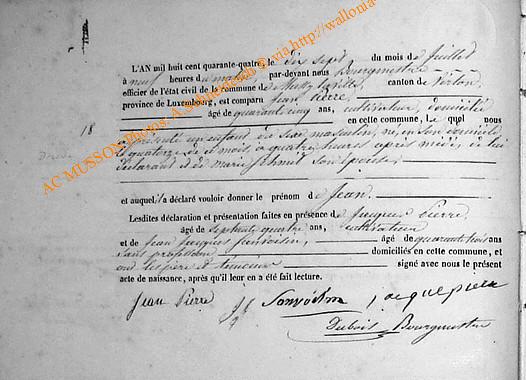 L'AN mil huit cent quarante-quatre le dix sept du mois de Juillet
à neuf heures du matin, par-devant nous Bourgmestre
officier de l'état civil de la commune de Mussy la ville, canton de Virton,
province de Luxembourg, est comparu Jean Pierre,
âgé de quarante cinq ans, cultivateur, domicilié
en cette commune, lequel nous
18
a présenté un enfant du sexe masculin, né, en son domicile
le quatorze de ce mois, à quatre heures après midi, de lui
déclarant et de marie son épouse,
et auquel il a déclaré vouloir donner le prénom de Jean.
Lesdites déclaration et présentation faites en présence de Jacques Pierre,
âgé de septante quatre ans, cultivateur
et de Jean Jacques âgé de quarante trois ans
sans profession domiciliés en cette commune, et
ont les père et témoins signé avec nous le présent
acte de naissance, après qu'il leur en a été fait lecture.
Jean Pierre J. J. jacque pierre
Dubois Bourgmestre
AC MUSSON Photos: A. via http://wallonia